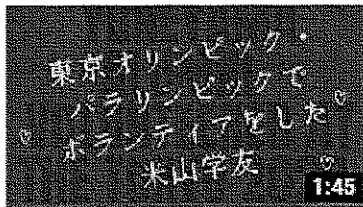 東京オリンピック・
パラリンピックで
ボランティアをした
米山学友
1:45